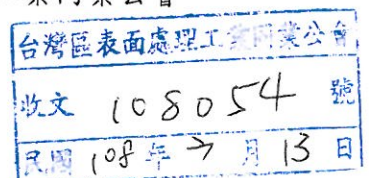 台灣區表面處理工業同業公會
收文 108054 號
民國 108 年 月 13 日